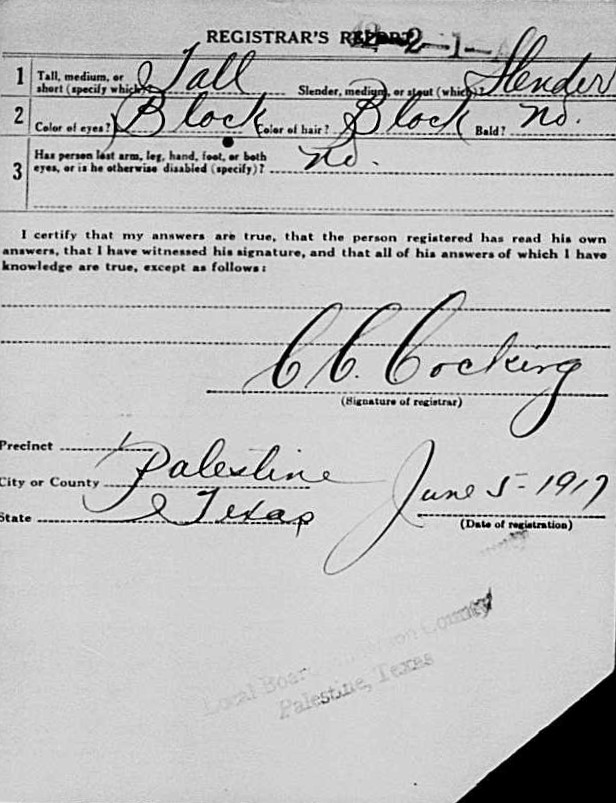 REGISTRAR'S REPORT
2-1-
1 Tall, medium, or short (specify which)? Tall Slender, medium, or stout (which)? Slender
2 Color of eyes? Black Color of hair? Black Bald? no.
3 Has person lost arm, leg, hand, foot, or both eyes, or is he otherwise disabled (specify)? no.
I certify that my answers are true, that the person registered has read his own
answers, that I have witnessed his signature, and that all of his answers of which I have
knowledge are true, except as follows:
C C. Cocking
(Signature of registrar)
Precinct
City or County Palestine
State Texas
June 5-1917
(Date of registration)
Local Board County
Palestine, Texas